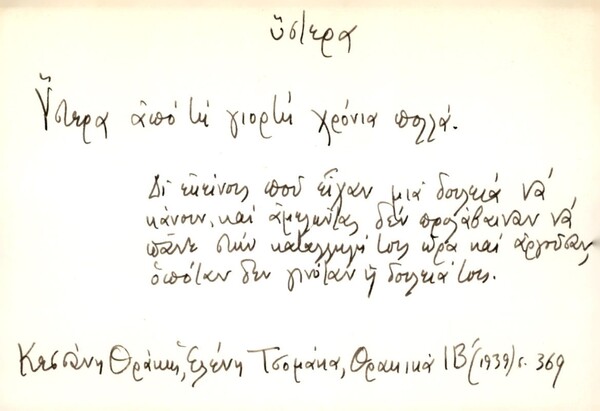 ὕστερα
Ὕστερα ἀπό τή γιορτή χρόνια πολλά.
Δι' ἐκείνους πού εἶχαν μιά δουλειά νά
κάνουν, καί ἀμελῶντας δέν προλάβαιναν νά
πᾶνε στήν κατάλληλή τους ὥρα καί ἀργοῦσαν,
ὁπόταν δεν γινόταν ἡ δουλειά τους.
Κεσσάνη Θράκης, Ελένη Τσομάκα, Θρακικά ΙΒ' (1939) σ. 369